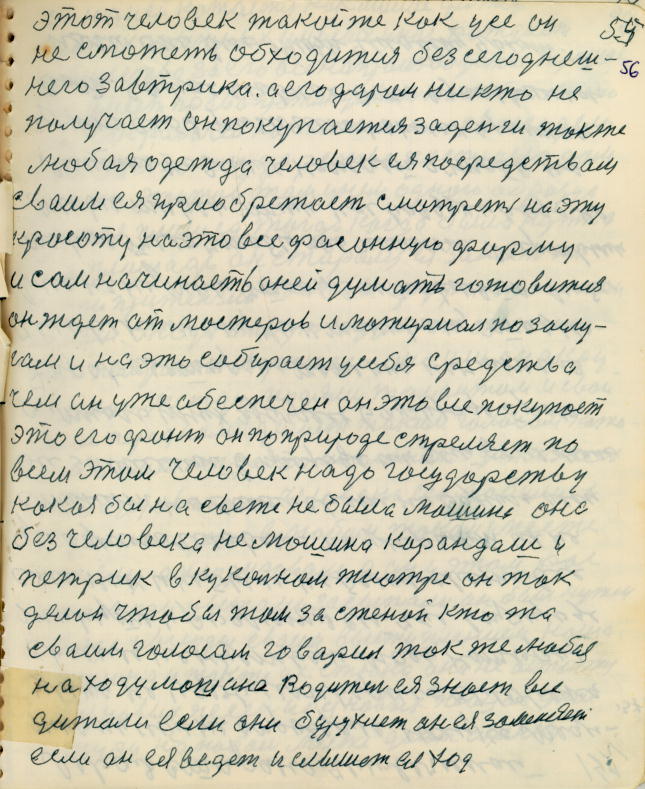 этот человек такой же как усе он 55
не сможеть обходится без сегоднеш- 56
него завтрика. а его даром никто не
получает он покупается за денги также
любая одежда человек ея посредствам
сваим ея приобретает смотреть на эту
красоту на это все фасонную форму
и сам начинаеть оней думать готовится
он ждет от мастеров и матириал по заслу-
гам и на это собирает усебя средства
чем он уже обеспечен он это все покупает
это его фронт он по природе стреляет по
всем этом человек надо государству
какая бы на свете не была машина она
без человека не машина карандаш и
петрик в кукольном тиотре он так
делал чтобы там за стеной кто та
сваим голосам говарил также любая
на ходу машина Водител ея знает все
дитали если они
если он ея ведет и слышит ея ход